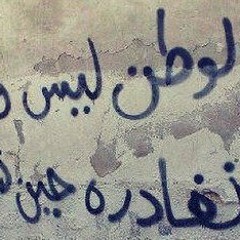 لوطن ليس و
نغادره حين